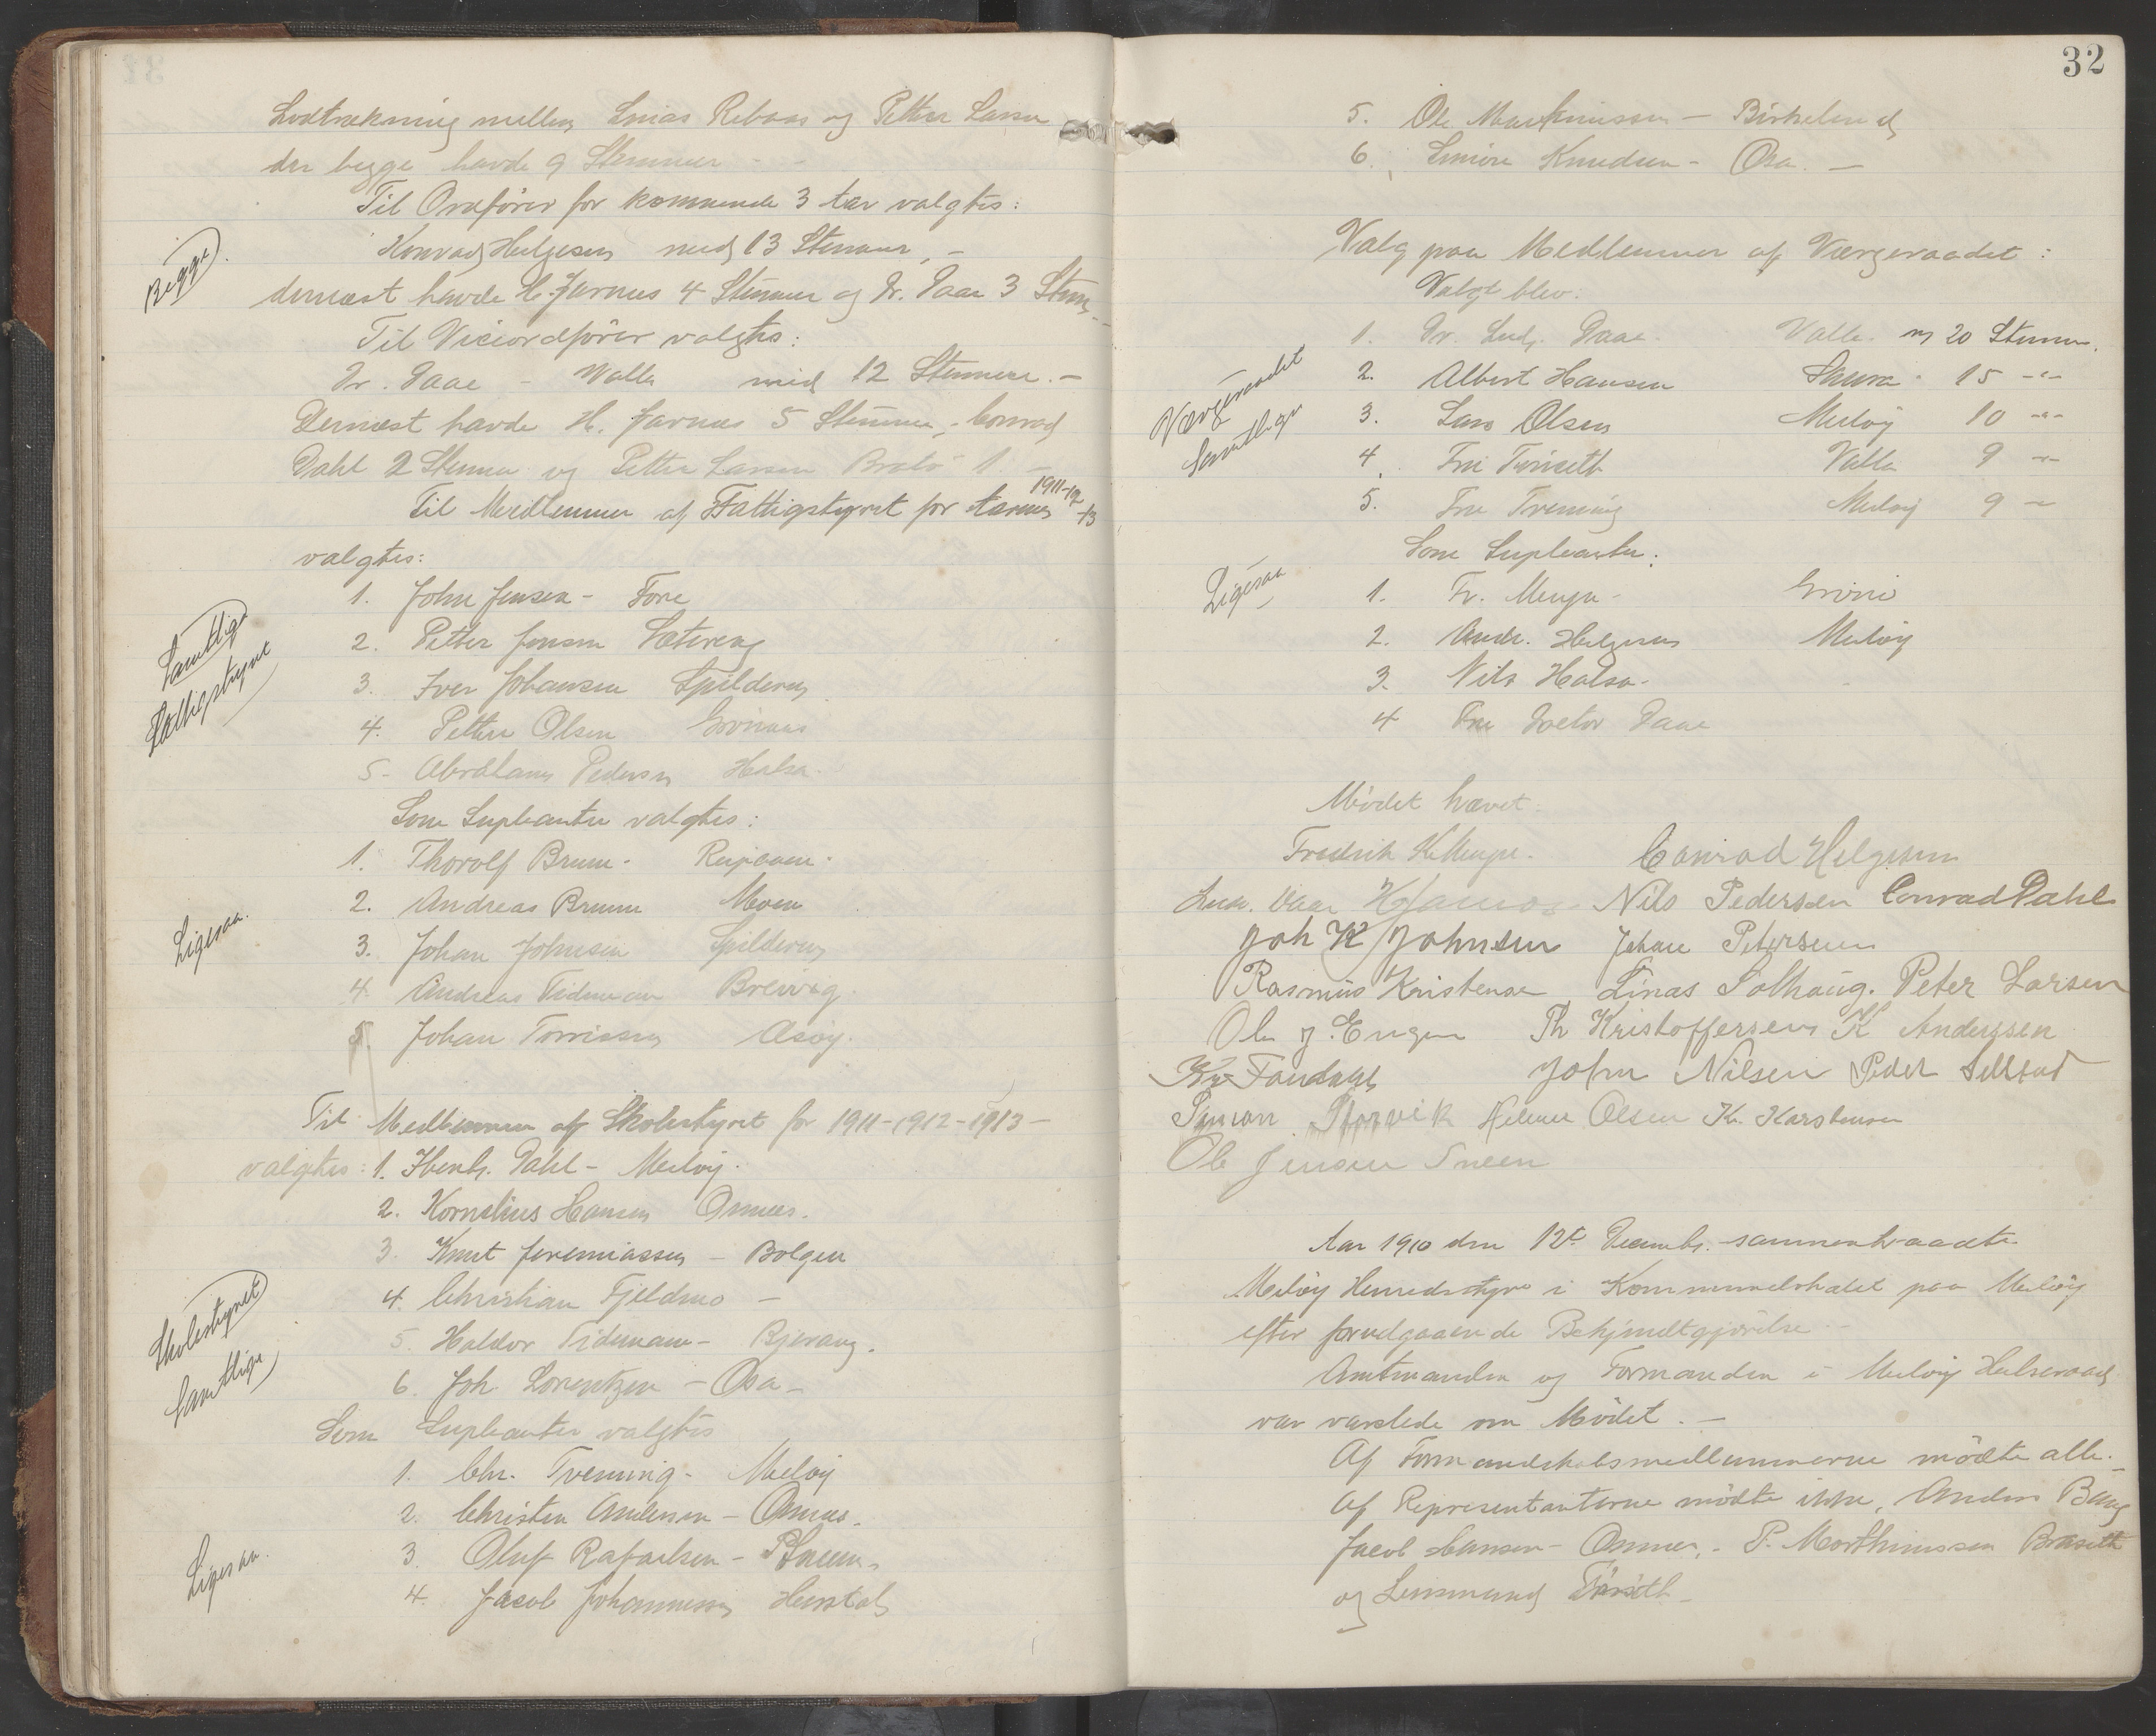 Lodtrækning mellem Linas Rebaas og Petter Larsen
der begge havde 9 Stemmer -
Til Ordfører for kommende 3 Aar valgtes:
Konrad Helgesen med 13 Stemmer, -
Begge
dernæst havde H. Jarnæs 4 Stemmer og Dr. Daae 3 Stem.
Til Viceordfører valgtes:
Dr. Daae - Valla med 12 Stemmer. -
Dernæst havde H. Jarnæs 5 Stemmer, - Conrad
Dahl 2 Stemmer og Petter Larsen 1. -
Til Medlemmer af Fattigstyret for Aarene 1911-12-13
valgtes:
1. John Jensen - Fore
Samtlige
Fattigstyret
2. Petter Jensen Sætereng
3. Iver Johansen Spilderen
4. Petter Olsen Grønnæs
5- Abraham Pedersen Halsa.
Som Supleanter valgtes:
1. Thorolf Bruun - Reipaaen.
2. Andreas Bruun Moen
Ligesaa.
3. Johan Johnsen Spilderen
4. Andreas Tidemann Breivig.
5 Johan Torrissen Åsøy.
Til Medlemmer af Skolestyret for 1911-1912-1913-
valgtes: 1. Henh. Dahl - Meløy.
2. Kornelius Hansen Ørnæs.
3. Knut Jeremiassen - Bolgen
4. Christian Fjeldmo -
Skolestyret
Samtlige
5. Haldor Tidemann - Bjerang.
6. Joh. Lorentzen - Osa -
Som Supleanter valgtes
1. Chr. Tvenning - Meløy
2. Christen Andersen - Ørnæs.
3. Oluf Rafaelsen -
Ligesaa.
4. Jacob Johannessen
32
5. Ole Markussen - Birkeland
6. Simon Knudsen - Osa. -
Valg paa Medlemmer af Værgeraadet:
Valgt blev:
1. Dr. Ludv. Daae. Valla. m 20 Stemmer.
Værgeraadet
Samtlige
2. Albert Hansen Skaura 15 -"-
3. Lars Olsen Meløy 10 -"-
4. Fru Turiseth Valla 9 -"-
5. Fru Tvenning Meløy 9 -"-
Som Supleanter:
Ligesaa
1. Fr. Meyer - Grønø
2. Andr. Helgesen Meløy
3. Nils Halsa.
4 Fru Doktor Daae
Mødet hævet.
Fredrik K. Meyer. Conrad Helgesen
Ludv. Daae H Jarnæs Nils Pedersen Conrad Dahl
Joh K Johnsen Johan Petersen
Rasmus Kristensen Linas Solhaug. Peter Larsen
Ole J. Engen Th Kristoffersen K Anderssen
John Nilsen Peder Selstad
Simon Storvik Helmer Olsen K. Karstensen
Ole Jensen Sneen
Aar 1910 den 12te Decembr. sammentraadte
Meløy Herredsstyre i Kommunelokalet paa Meløy
efter forudgaaende Bekjendtgjørelse -
Amtmanden og Formanden i Meløy Helseraad
var varslede om Mødet. -
Af Formandskabsmedlemmerne mødte alle. -
Af Repræsentanterne mødte ikke, Anders Bang
Jacob Hansen - Ørnæs, - P. Morthinussen Braseth
og Lensmand Turiseth -